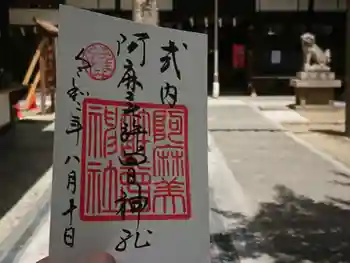 式内
阿麻美許曽神社
八月十日
阿麻美
許曽
神社